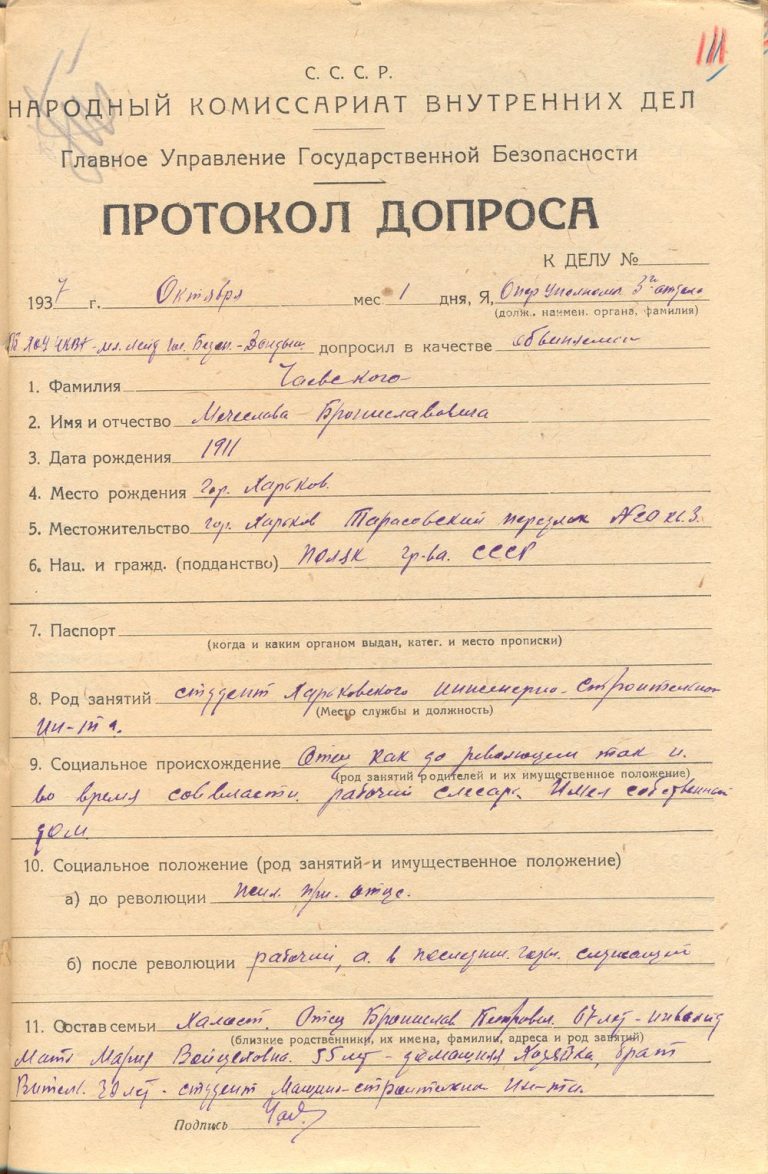 111
С. С. С. Р.
НАРОДНЫЙ КОМИССАРИАТ ВНУТРЕННИХ ДЕЛ
Главное Управление Государственной Безопасности
ПРОТОКОЛ ДОПРОСА
К ДЕЛУ №
1937 г. Октября мес 1 дня, Я, Опер уполном. 3го отдела
(долж., наимен. органа, фамилия)
УГБ ХОУ НКВД - мл. лейт. Гос. Безоп. - допросил в качестве обвиняемого
1. Фамилия Чаевского
2. Имя и отчество Мечеслава Брониславовича
3. Дата рождения 1911
4. Место рождения гор. Харьков.
5. Местожительство гор. Харьков Тарасовский № 20 кв. 3.
6. Нац. и гражд. (подданство) поляк гр-ва. СССР
7. Паспорт
(когда и каким органом выдан, катег. и место прописки)
8. Род занятий студент Харьковского инженерно-строительного
(Место службы и должность)
ин-та.
9. Социальное происхождение Отец как до революции так и
(род занятий родителей и их имущественное положение)
во время соввласти рабочий слесарь. Имел собственный
дом.
10. Социальное положение (род занятий и имущественное положение)
а) до революции жил при отце.
б) после революции рабочий, а в последние годы служащий
11. Состав семьи Холост. Отец Бронислав Петрович 67 лет - инвалид
(близкие родственники, их имена, фамилии, адреса и род занятий)
Мать Мария 55 лет - домашняя хозяйка, брат
30 лет - студент Машино-строительн. Ин-та.
Подпись